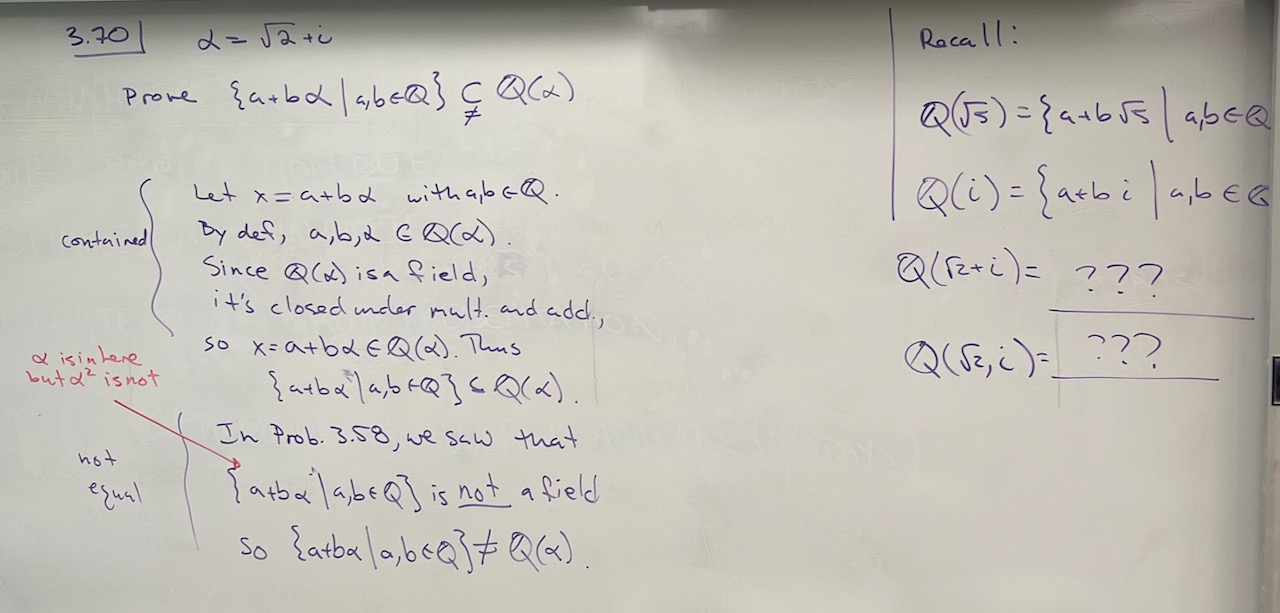 3.70 α = √2 + i
Prove {a+bα | a,b∈Q} ⊊ Q(α)
contained
Let x = a+bα with a,b ∈ Q.
By def, a,b,α ∈ Q(α).
Since Q(α) is a field,
it's closed under mult. and add.,
so x = a+bα ∈ Q(α). Thus
{a+bα | a,b∈Q} ⊆ Q(α).
α is in here
but α² is not
not
equal
In Prob. 3.58, we saw that
{a+bα | a,b∈Q} is not a field
so {a+bα | a,b∈Q} ≠ Q(α).
Recall:
Q(√5) = {a+b√5 | a,b∈Q
Q(i) = {a+bi | a,b ∈ Q
Q(√2+i) = ???
Q(√2,i) = ???